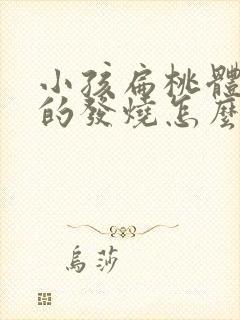 小孩扁桃體
的發燒怎麼
烏莎